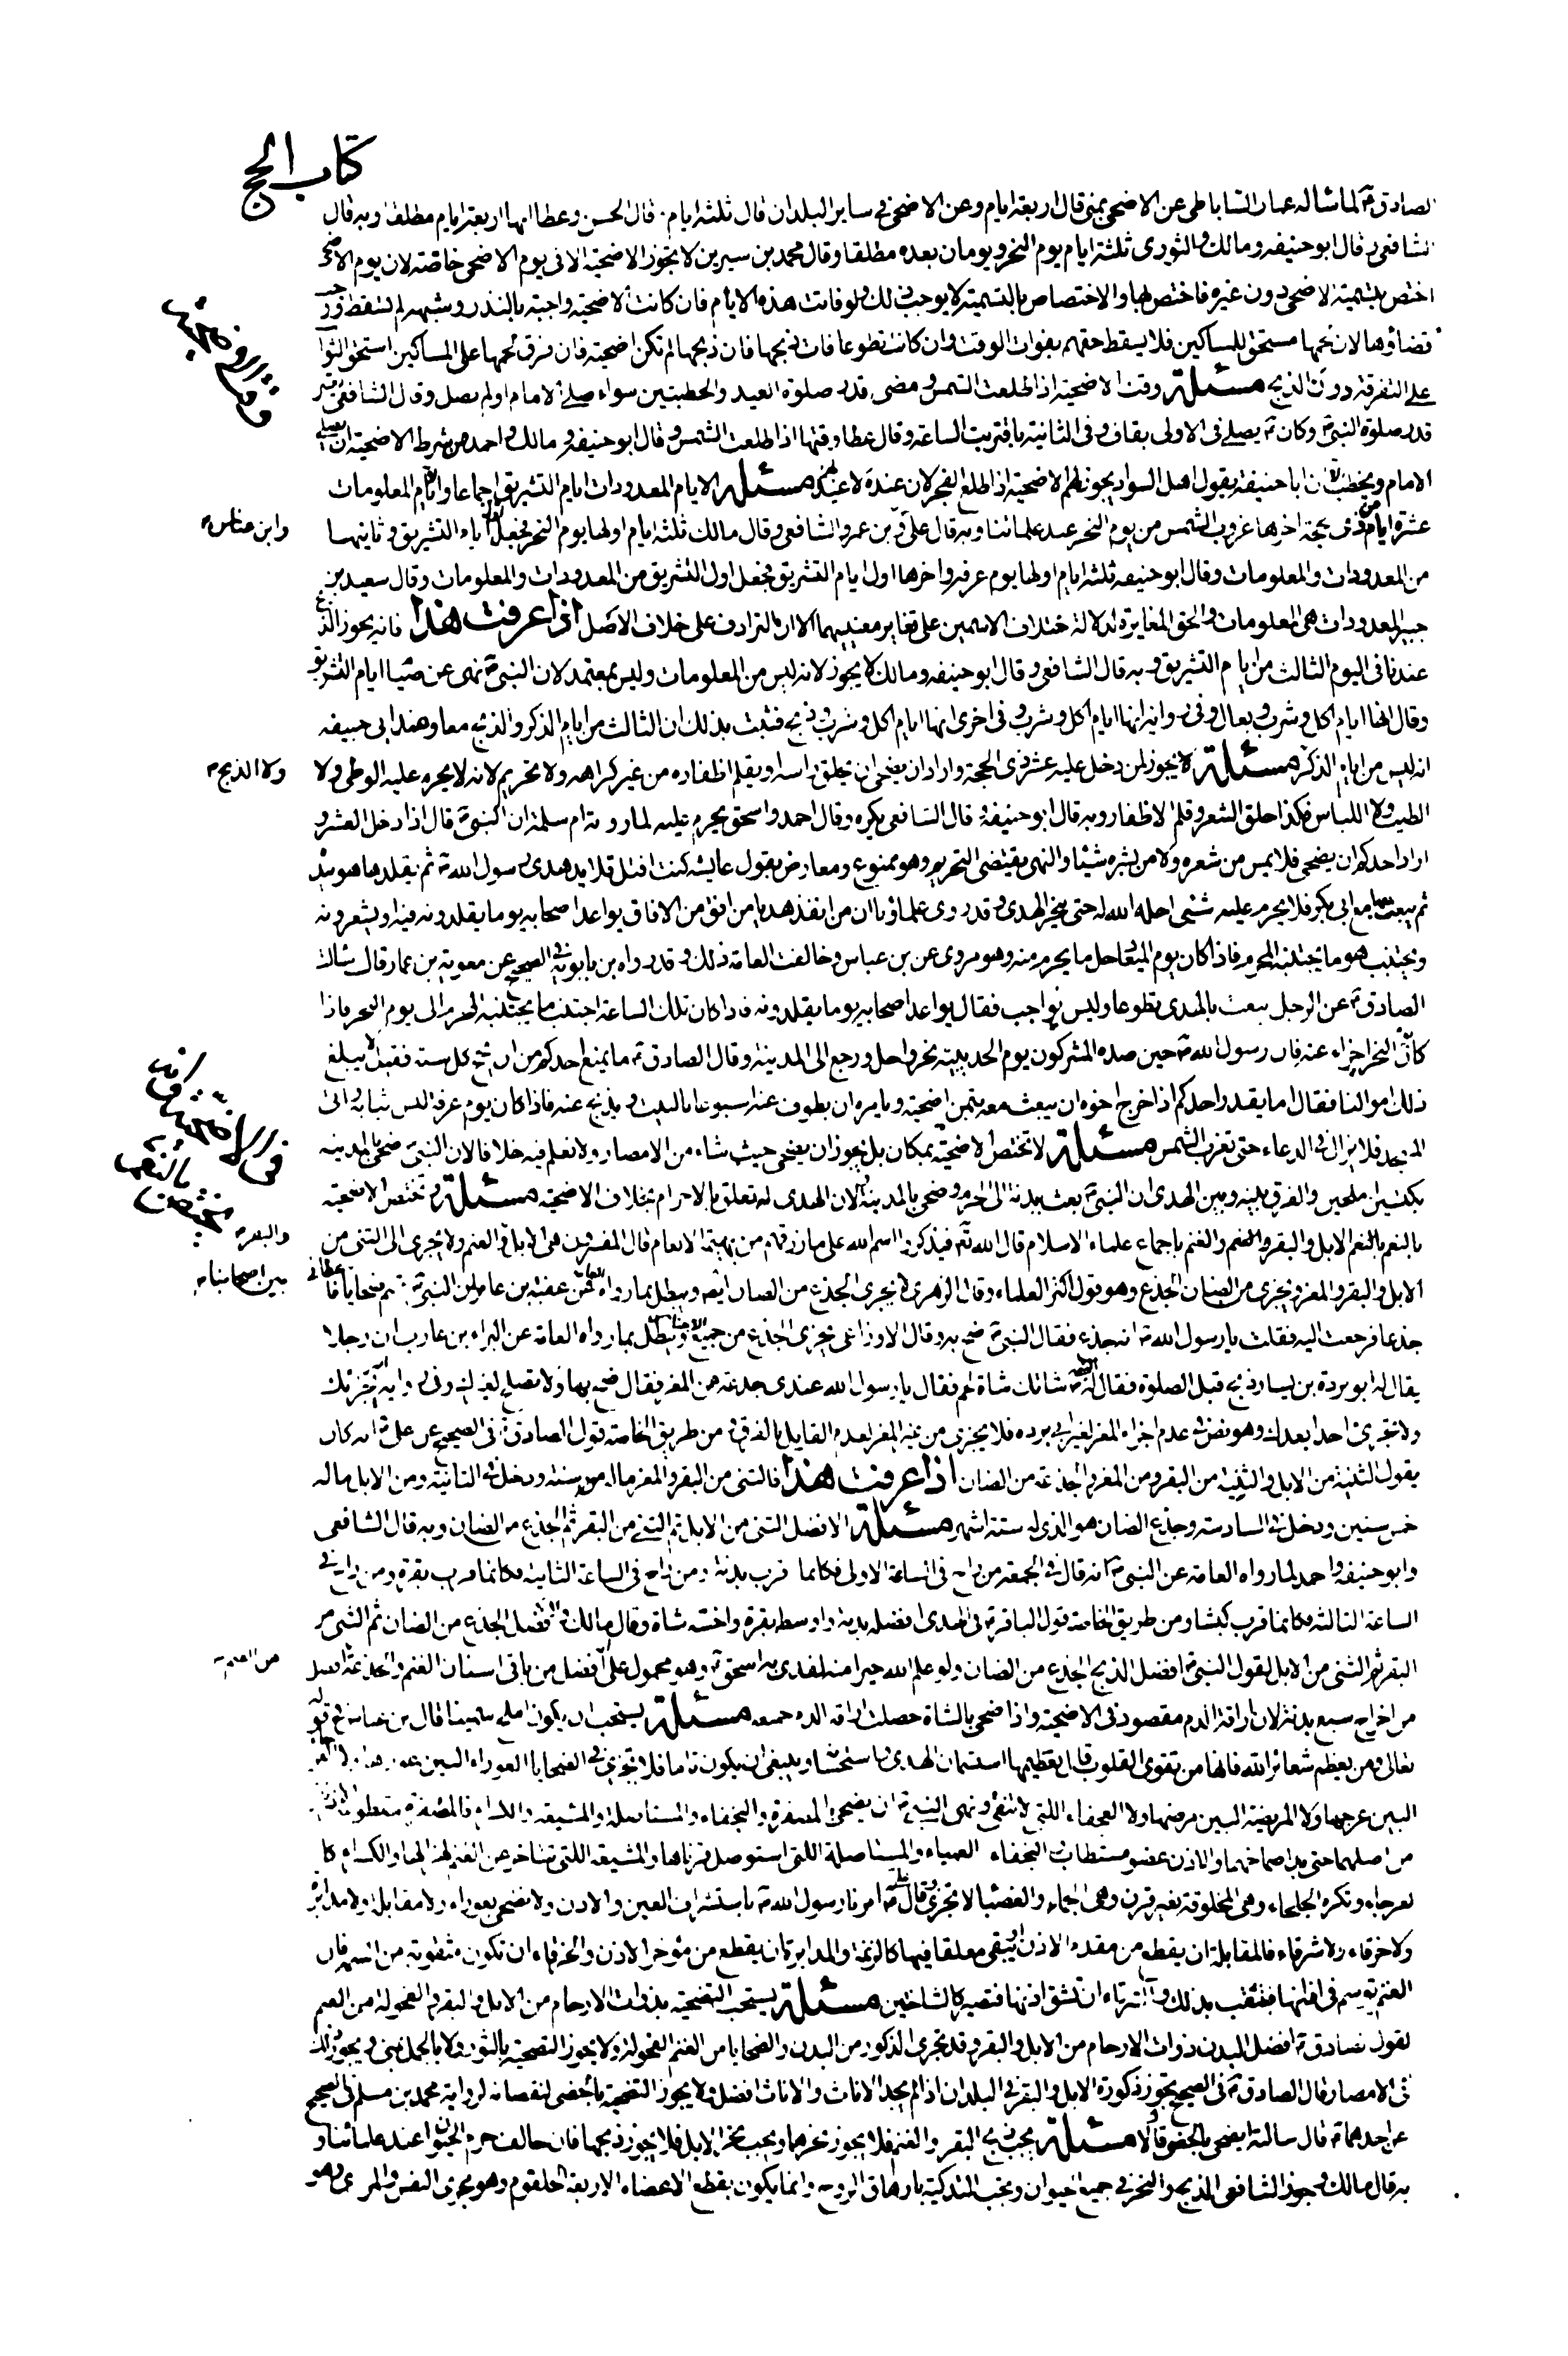 كتاب الحج
الصادق ع لما سأله عمار الساباطى عن الاضحى بمنى قال اربعة ايام وعن الاضحى فى ساير البلدان قال ثلثة ايام وقال الحسن وعطا انها اربعة ايام مطلقا وبه قال
الشافعى وقال ابو حنيفه ومالك والثورى ثلثة ايام يوم النحر ويومان بعده مطلقا وقال محمد بن سيرين لا يجوز الاضحية الا فى يوم الاضحى خاصة لان يوم الاضحى
اختص بتسمية الاضحى دون غيره فاختص بها والاختصاص بالتسمية لا يوجب ذلك ولو فاتت هذه الايام فان كانت الاضحية واجبة بالنذر وشبهه لم تسقط ووجب
قضاؤها لان لحمها مستحق للمساكين فلا يسقط حقهم بفوات الوقت وان كانت تطوعا فات ذبحها فان ذبحها لم تكن اضحية فان فرق لحمها على المساكين استحق الثواب
وقت الاضحية
على التفرقة دون الذبح مسئلة وقت الاضحية اذا طلعت الشمس ومضى قدر صلوة العيد والخطبتين سواء صلى الامام او لم يصل وقال الشافعى
قدر صلوة النبى ص وكان ص يصلى فى الاولى بقاف وفى الثانية باقتربت الساعة وقال عطا وقتها اذا طلعت الشمس وقال ابو حنيفه ومالك واحمد من شرط الاضحية ان يصلى
الامام ويخطب الا ان ابا حنيفة يقول اهل السواد يجوز لهم الاضحية اذا طلع الفجر لان عنده لا عيد لهم مسئلة الايام المعدودات ايام التشريق اجماعا وايام المعلومات
عشرة ايام من ذى حجة اخرها غروب الشمس من يوم النحر عند علمائنا وبه قال على ع وبن عمر والشافعى وقال مالك ثلثة ايام اولها يوم النحر فجعل اول ايام التشريق وثانيهما
وابن عباس
من المعدودات والمعلومات وقال ابو حنيفه ثلثة ايام اولها يوم عرفه واخرها اول ايام التشريق فجعل اول التشريق من المعدودات والمعلومات وقال سعيد بن
جبير المعدودات هى المعلومات والحق المغايرة لدلالة اختلاف الاسمين على تغاير معنييهما الا ان الترادف على خلاف الاصل اذا عرفت هذا فانه يجوز الذبح
عندنا فى اليوم الثالث من ايام التشريق وبه قال الشافعى وقال ابو حنيفه ومالك لا يجوز لانه ليس من المعلومات وليس بمعتمد لان النبى ص نهى عن صيام ايام التشريق
وقال انها ايام اكل وشرب وبعال وفى رواية انها ايام اكل وشرب وفى اخرى انها ايام اكل وشرب وذبح فثبت بذلك ان الثالث من ايام الذكر والذبح معا وعند ابى حنيفه
انه ليس من ايام الذكر مسئلة لا يجوز لمن دخل عليه عشر ذى الحجة واراد ان يضحى ان يحلق راسه او يقلم اظفاره من غير كراهه ولا تحريم لانه لا يحرم عليه الوطى ولا
ولا الذبح
الطيب ولا اللباس فكذا حلق الشعر وقلم الاظفار وبه قال ابو حنيفة وقال الشافعى يكره وقال احمد واسحق يحرم عليه لما روته ام سلمة ان النبى ص قال اذا دخل العشر و
اراد احدكم ان يضحى فلا يمس من شعره ولا من بشره شيئا والنهى يقتضى التحريم وهو ممنوع ومعارض بقول عايشه كنت افتل قلايد هدى رسول الله ص ثم يقلدها هو بيده
ثم يبعث بها مع ابى بكر فلا يحرم عليه شئ احله الله له حتى ينحر الهدى وقد روى علماؤنا ان من انفذ هديا من افق من الافاق يواعد اصحابه يوما يقلدونه فيه او يشعرونه
ويجتنب هو ما يجتنبه المحرم فاذا كان يوم الميعاد حل مما يحرم منه وهو مروى عن بن عباس وخالفت العامة ذلك وقد رواه بن بابويه فى الصحيح عن معوية بن عمار قال سئلت
الصادق ع عن الرجل يبعث بالهدى تطوعا وليس بواجب فقال يواعد اصحابه يوما يقلدونه فاذا كان تلك الساعة اجتنب ما يجتنبه المحرم الى يوم النحر فاذا
كان النحر اجزاء عنه فان رسول الله ص حين صده المشركون يوم الحديبية نحر واحل ورجع الى المدينة وقال الصادق ع ما يمنع احدكم من ان يحج كل سنة فقيل لا يبلغ
ذلك اموالنا فقال اما يقدر احدكم اذا خرج اخوه ان يبعث معه بثمن اضحية ويامره ان يطوف عنه اسبوعا بالبيت ويذبح عنه فاذا كان يوم عرفة لبس ثيابه واتى
المسجد فلا يزال فى الدعاء حتى تغرب الشمس مسئلة لا تختص الاضحية بمكان بل يجوز ان يضحى حيث شاء من الامصار ولا نعلم فيه خلافا لان النبى ص ضحى بالمدينه
بكبشين املحين والفرق بينه وبين الهدى ان النبى ص بعث ببدنة الى الحرم وضحى بالمدينة ولان الهدى له تعلق بالاحرام بخلاف الاضحية مسئلة وتختص الاضحية
فى ان الاضحية تختص بالنعم
بالنعم بالنعم الابل والبقر والغنم والغنم باجماع علماء الاسلام قال الله تعالى فيذكروا اسم الله على ما رزقهم من بهيمة الانعام قال المفسرون هى الابل والغنم ولا يجزى الا الثنى من
والبقر
الابل والبقر والمعز ويجزى من الضان الجذع وهو قول اكثر العلماء وقال الزهرى لا يجزى الجذع من الضان ايضا ويبطل بما رواه العامة عن عقبة بن عامر ان النبى ص قسم ضحايا
بين اصحابنا
جذعا فرجعت اليه فقلت يا رسول الله ص انه جذع فقال النبى ص ضح به وقال الاوزاعى يجزى الجذع من جميع الاجناس ويبطل بما رواه العامة عن البراء بن عازب ان رجلا
يقال له ابو بردة بن يسار ذبح قبل الصلوة فقال له النبى ص شاتك شاة لحم فقال يا رسول الله عندى جذعة من المعز فقال ضح بها ولا تصلح لغيرك وفى رواية تجزئك
ولا تجزى احدا بعدك وهو نص فى عدم اجزاء المعز لغير ابى برده فلا يجزى من غير المعز لعدم القايل بالفرق ومن طريق الخاصة قول الصادق ع فى الصحيح عن على ع انه كان
يقول الثنية من الابل والثنية من البقر ومن المعز والجذعة من الضان اذا عرفت هذا فالثنى من البقر والمعز ماله سنة ودخل فى الثانية ومن الابل ماله
خمس سنين ودخل فى السادسة وجذع الضان هو الذى له ستة اشهر مسئلة الافضل الثنى من الابل ثم الثنى من البقر ثم الجذع من الضان وبه قال الشافعى
وابو حنيفه واحمد لما رواه العامة عن النبى ص انه قال فى الجمعة من راح فى الساعة الاولى فكانما قرب بدنة ومن راح فى الساعة الثانية فكانما قرب بقرة ومن راح فى
الساعة الثالثة فكانما قرب كبشا ومن طريق الخاصة قول الباقر ع فى الهدى افضله بدنة واوسطه بقرة واخسه شاة وقال مالك الافضل الجذع من الضان ثم الثنى من
البقر ثم الثنى من الابل لقول النبى ص افضل الذبح الجذع من الضان ولو علم الله خيرا منه لفدى به اسحق ع وهو محمول على انه افضل من باقى اسنان الغنم والجذعة افضل
من الغنم
من اخراج سبع بدنة لان اراقة الدم مقصود فى الاضحية واذا ضحى بالشاة حصلت اراقة الدم جميعه مسئلة يستحب ان يكون املح سمينا قال بن عباس فى قوله
تعالى ومن يعظم شعائر الله فانها من تقوى القلوب قال تعظيمها استسمان الهدى واستحسانه وينبغى ان يكون تاما فلا يجزى فى الضحايا العوراء البين عورها ولا العرجاء
البين عرجها ولا المريضة البين مرضها ولا العجفاء اللتى لا تنقى ونهى النبى ص ان يضحى المصفرة والبخفاء والمستاصلة والمشيعة والكسراء فالمصفرة مقطوعة الاذنين
من اصلهما حتى بدا صماخهما والاذن عضو مستطاب والبخفاء العمياء والمستاصلة اللتى استوصل قرناها والمشيعة اللتى تتاخر عن الغنم لهزالها والكسراء كا
لعرجاء وتكره الجلحاء وهى المخلوقة بغير قرن وهى الجماء والعضباء لا تجزى وقال على ع امرنا رسول الله ص باستشراف العين والاذن ولا نضحى بعوراء ولا مقابلة ولا مدابرة
ولا خرقاء ولا شرقاء فالمقابلة ان يقطع من مقدم الاذن ويبقى معلقا فيها كالزنمة والمدابرة ان يقطع من مؤخر الاذن والخرقاء ان تكون مثقوبة من السمة فان
الغنم توسم فى اذانها فتثقب بذلك والشرقاء ان تشق اذنها فتصير كالشاختين مسئلة يستحب التضحية بذوات الارحام من الابل والبقر والفحولة من الغنم
لقول الصادق ع افضل البدن ذوات الارحام من الابل والبقر وقد تجزى الذكورة من البدن والضحايا من الغنم الفحولة ولا يجوز التضحية بالثور ولا بالجمل بمنى ويجوز ذلك
فى الامصار قال الصادق ع فى الصحيح تجوز ذكورة الابل والبقر فى البلدان اذا لم يجد الاناث والاناث افضل ولا يجوز التضحية بالخصى لنقصانه لرواية محمد بن مسلم فى الصحيح
عن احدهما ع قال سالته ايضحى بالخصى قال لا مسئلة يجب ذبح البقر والغنم فلا يجوز نحرهما ويجب نحر الابل فلا يجوز ذبحها فان خالف حرم الحيوان عند علمائنا و
به قال مالك وجوز الشافعى الذبح والنحر فى جميع الحيوان ويجب التذكية بازهاق الروح وانما يكون بقطع الاعضاء الاربعة الحلقوم وهو مجرى النفس والمرى وهو